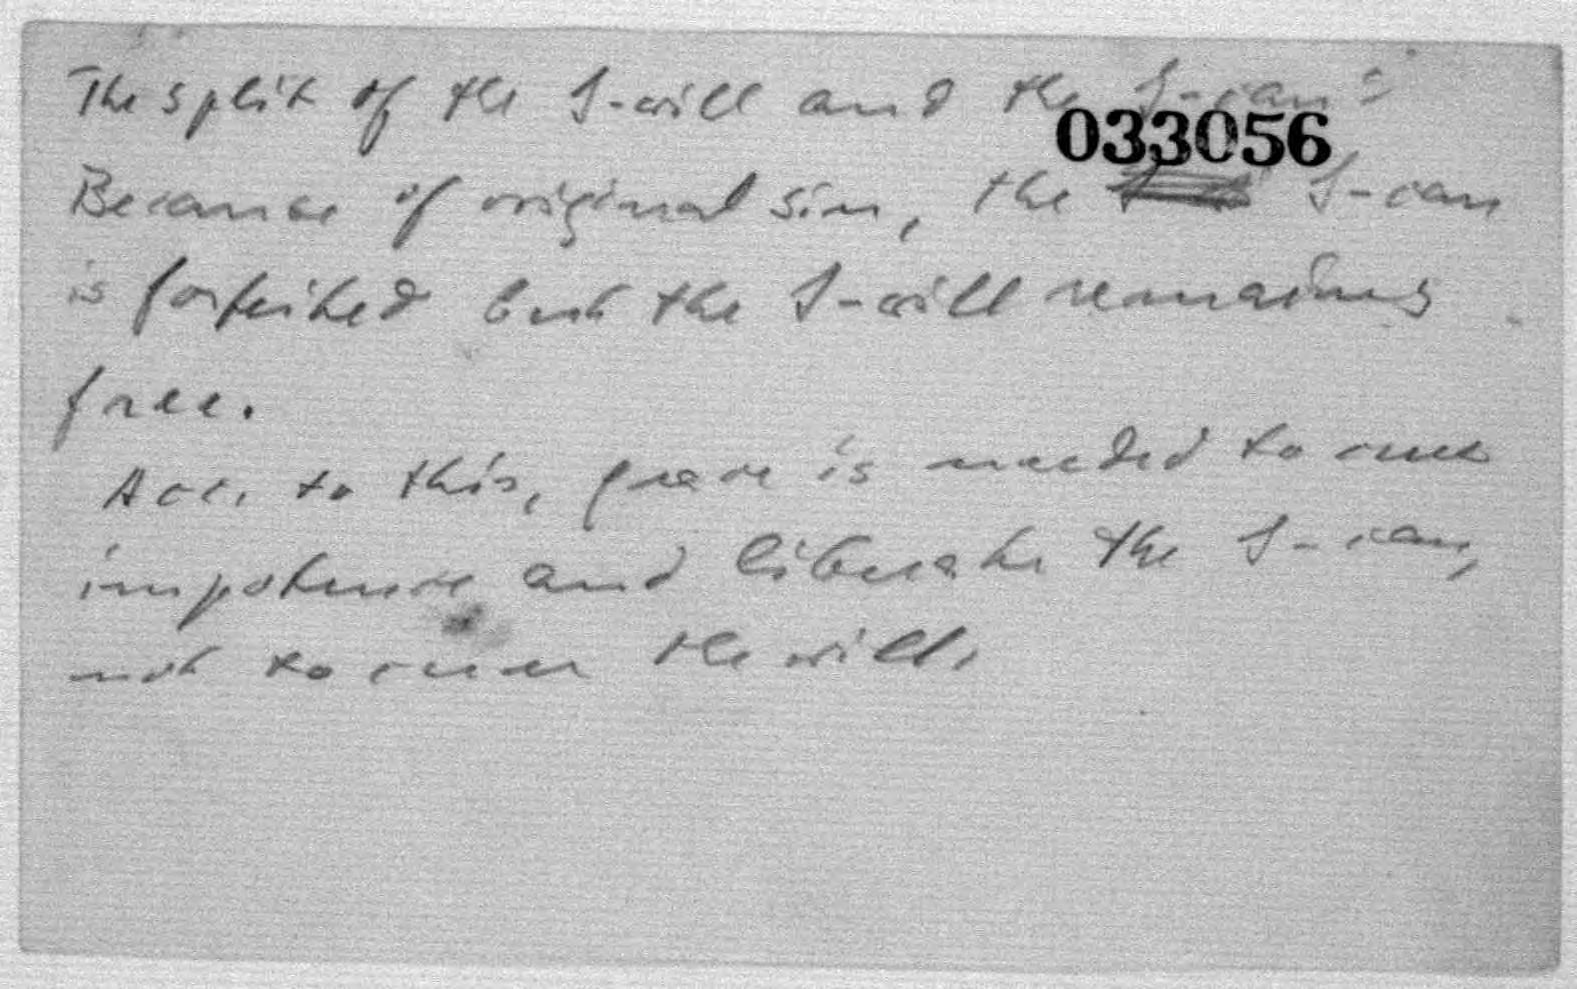 The split of the I-will and the I-can:
033056
Because of original sin, the I-can
is forfeited but the I-will remains
free.
Acc. to this, grace is needed to cure
impotence and liberate the I-can,
not to cure the will.